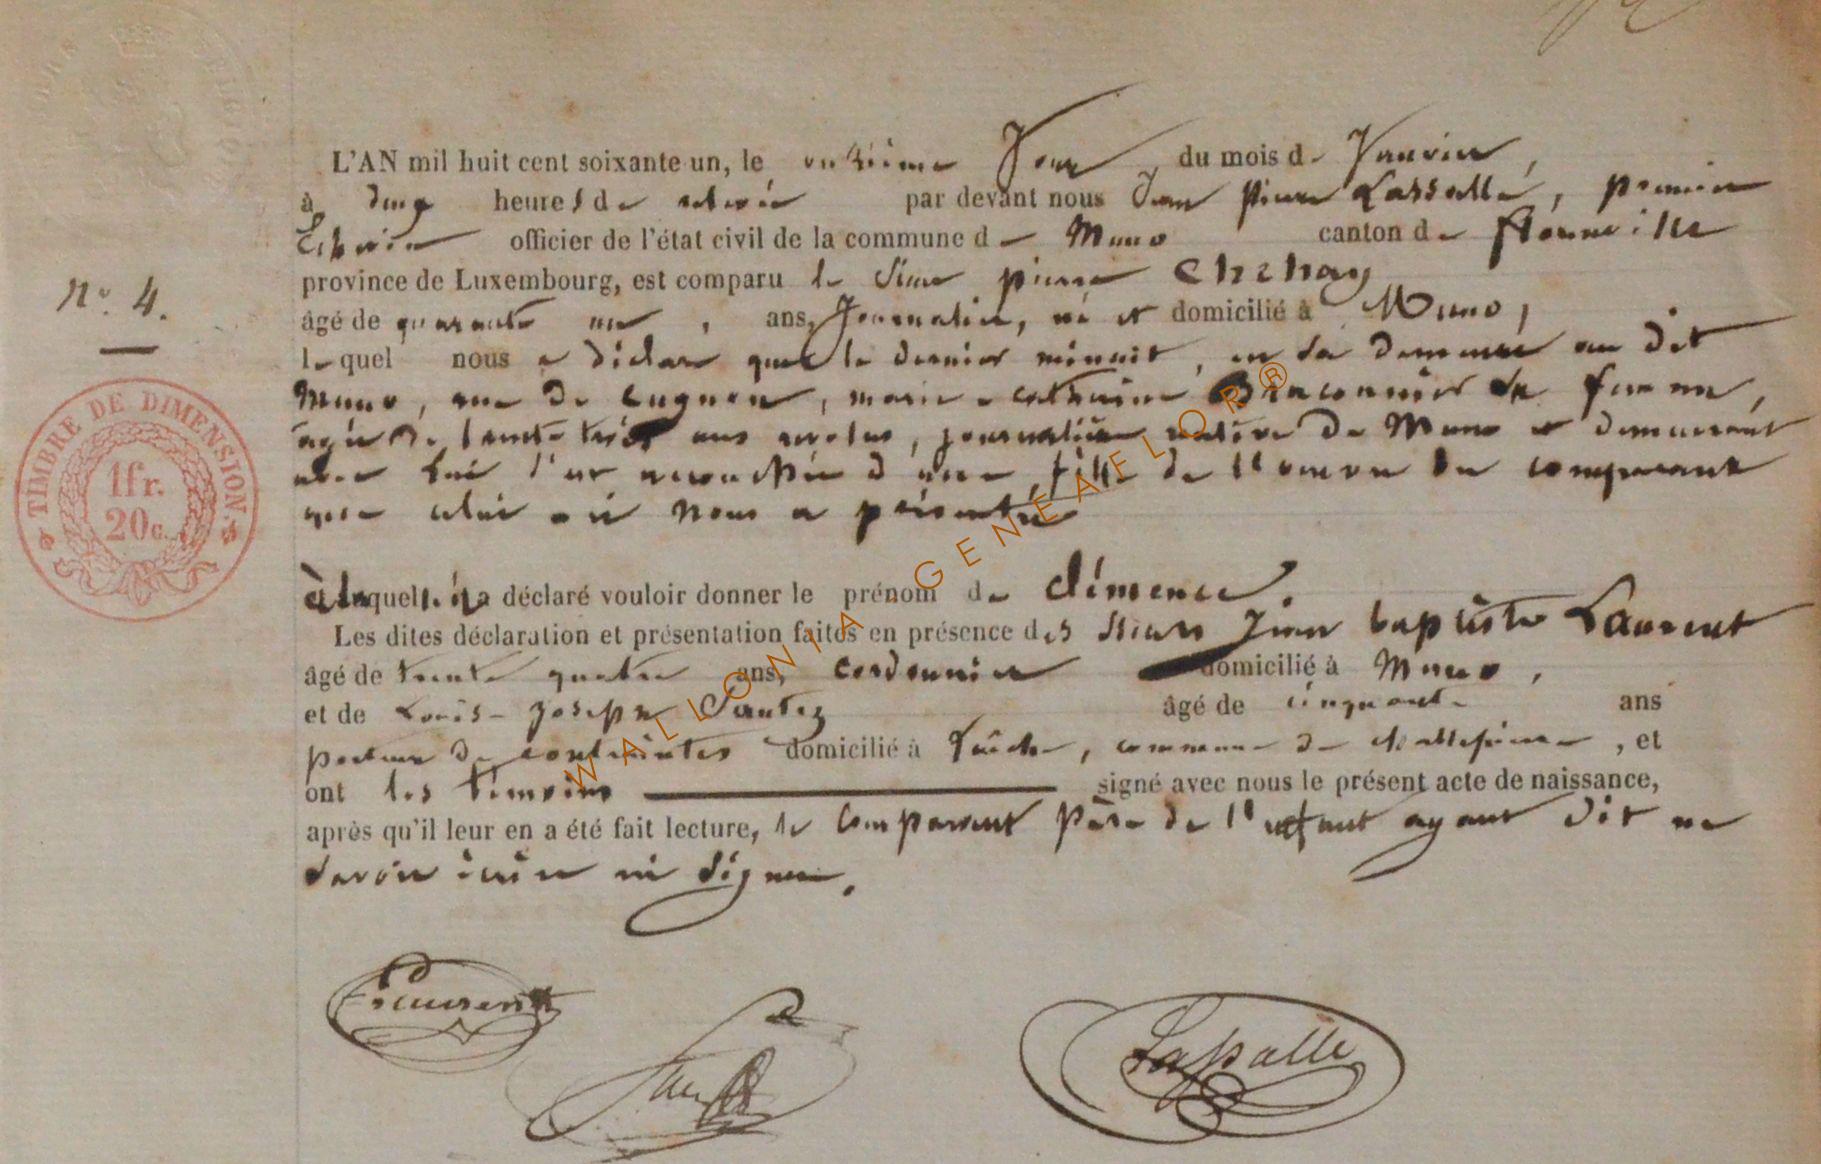 L'AN mil huit cent soixante un, le onzième Jour, du mois de Janvier,
à deux heures de relevée par devant nous Jean Pierre Lassalle, premier
Echevin officier de l'état civil de la commune de Muno canton de Florenville
province de Luxembourg, est comparu le Sieur pierre Chehay
âgé de quarante un, ans, Journalier, né et domicilié à Muno,
lequel nous a déclaré que le dernier minuit, en sa demeure au dit
Muno, rue de Cugnon, marie-catherine Braconnier sa femme,
agée de trente trois ans révolus, journalière native de Muno et demeurant
avec lui s'est accouchée d'une fille de l'oeuvre du comparant
que celui-ci nous a présentée
à laquelle il a déclaré vouloir donner le prénom de Clémence.
Les dites déclaration et présentation faites en présence des Sieurs Jean baptiste Laurent
âgé de trente quatre ans, cordonnier domicilié à Muno,
et de Louis-Joseph âgé de cinquante ans
porteur de contraintes domicilié à commune de, et
ont les témoins signé avec nous le présent acte de naissance,
après qu'il leur en a été fait lecture, le Comparant Père de l'enfant ayant dit ne
savoir écrire ni signer.
N°. 4.
TIMBRE DE DIMENSION.
1fr.
20c.
WALLONIA GENEAFLOR®
Laurent
Lassalle